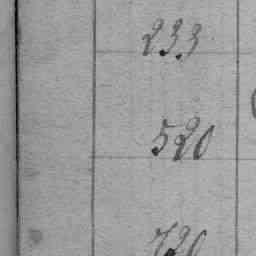 233
520
720